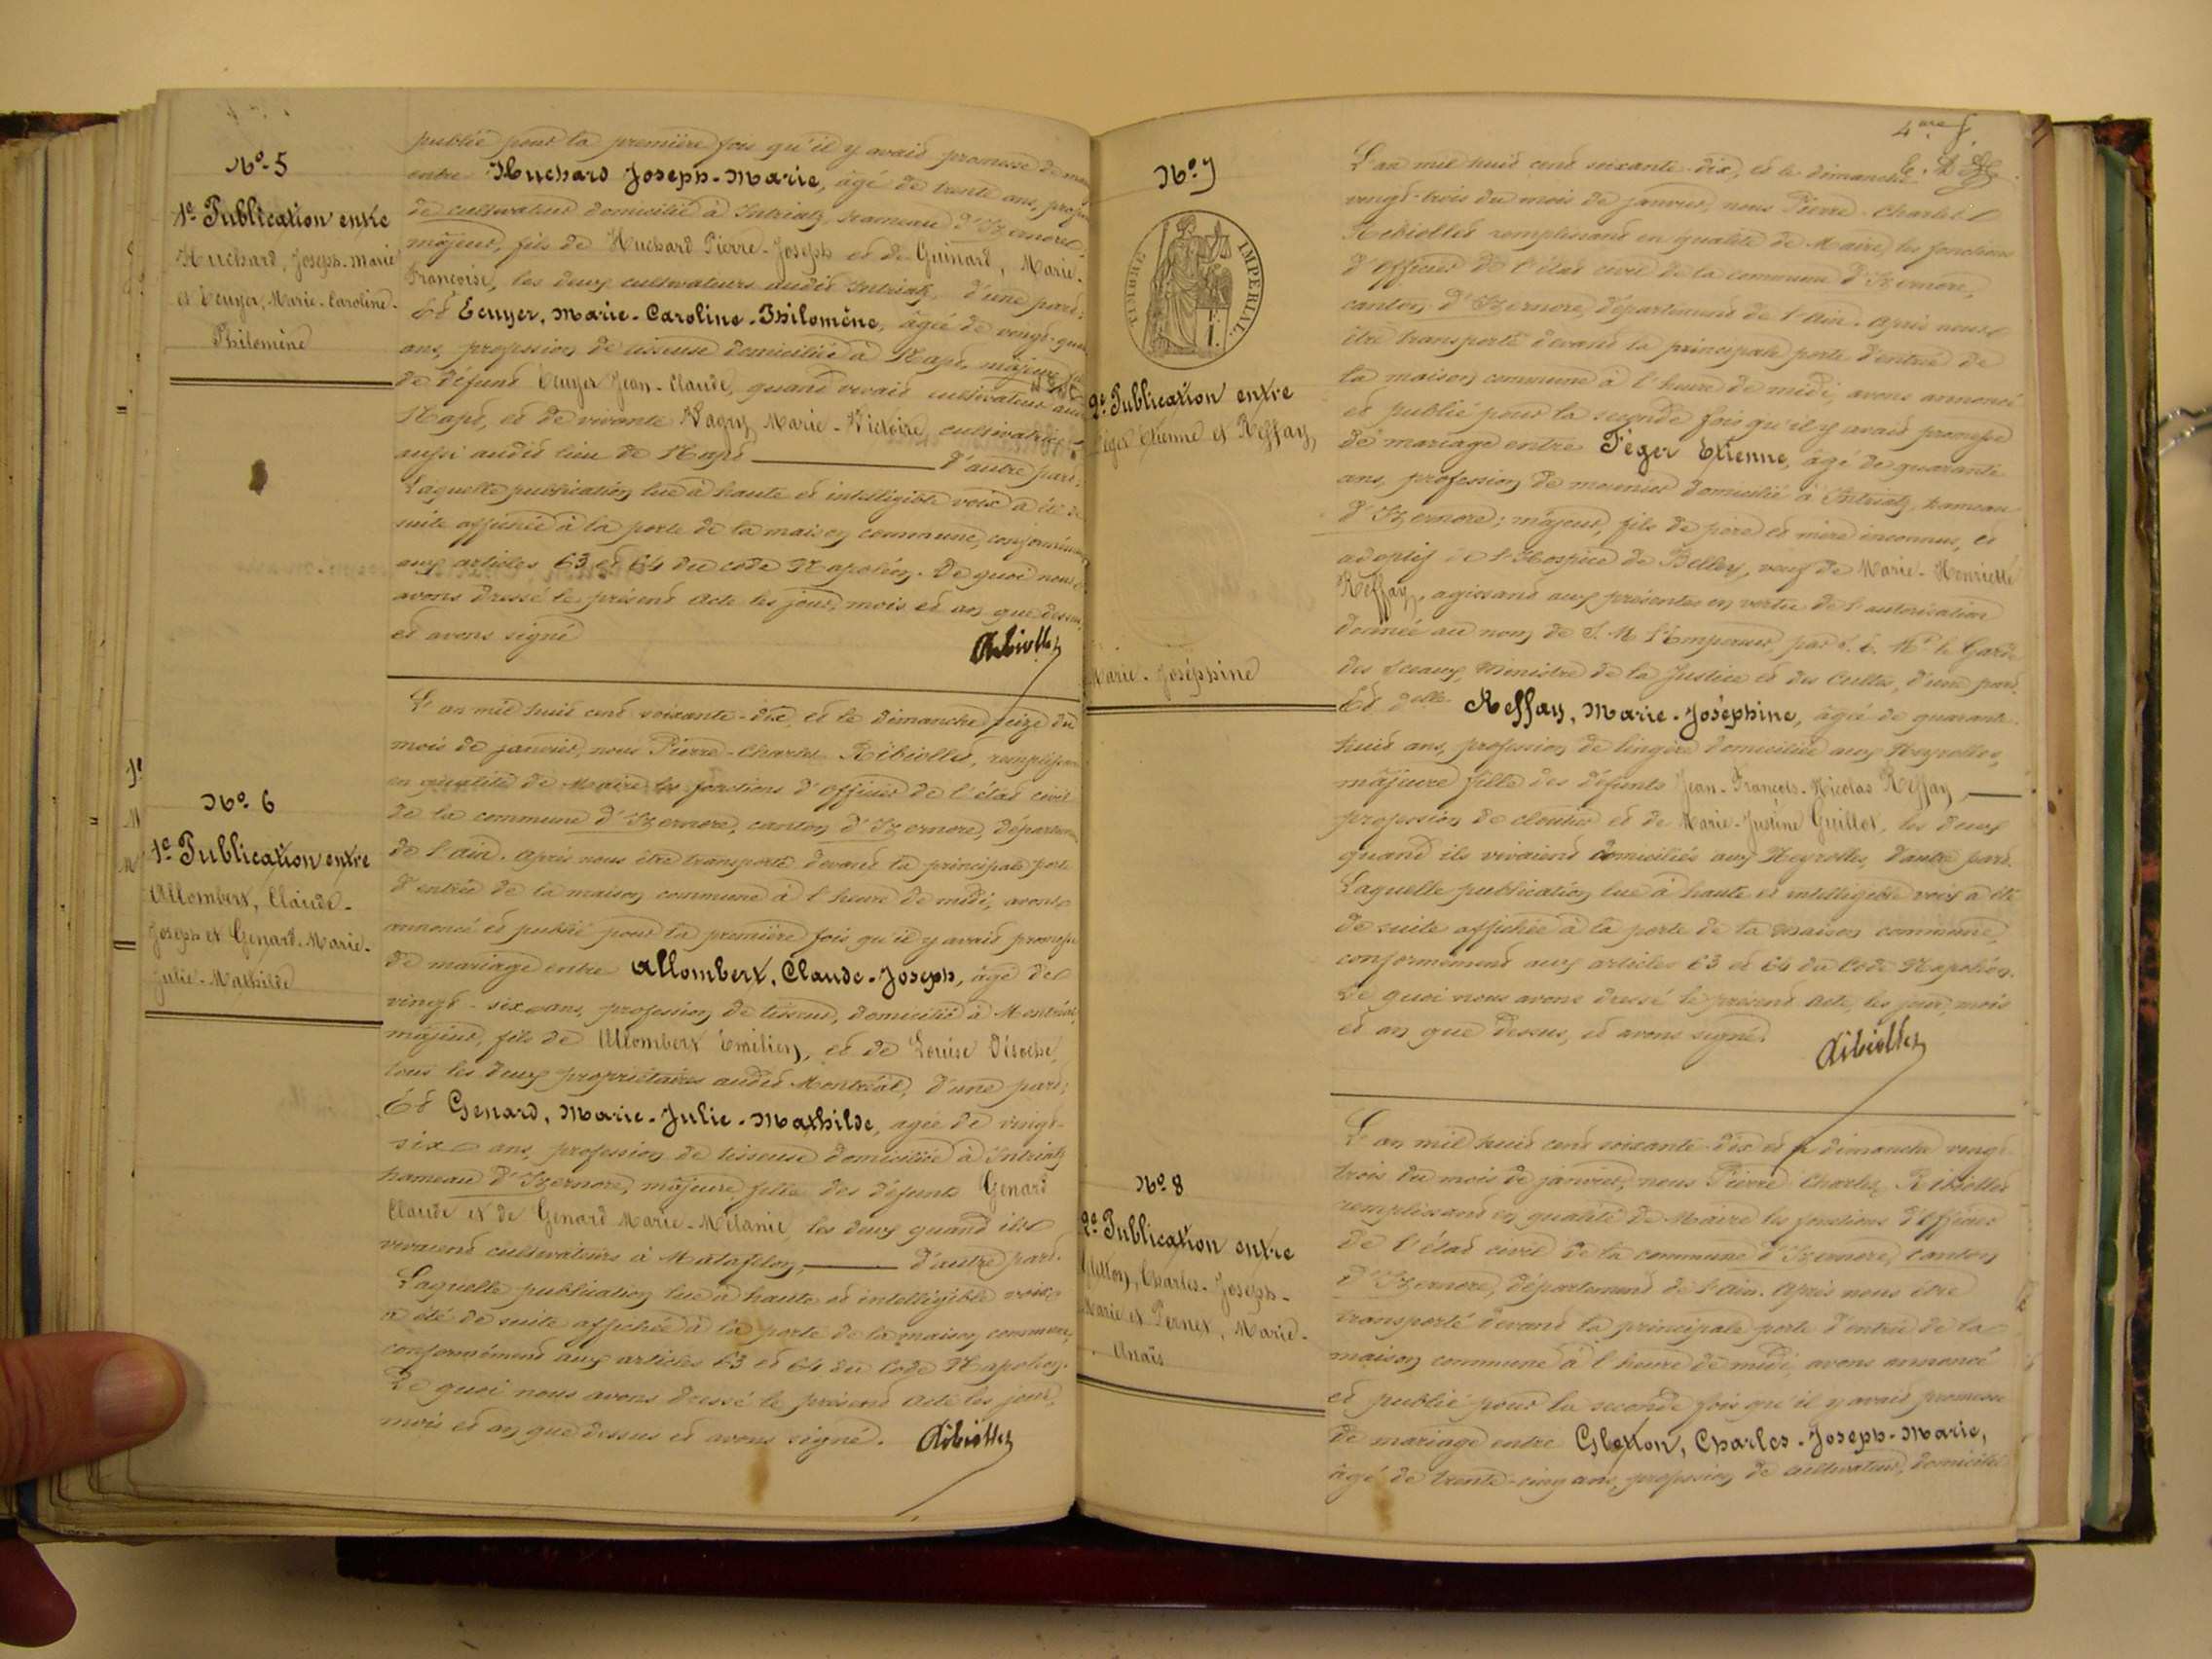 No. 5
1e Publication entre
Huchard, Joseph-Marie
et Ecuyer, Marie-Caroline-
Philomène
publié pour la première fois qu'il y avait promesse de
entre Huchard Joseph-Marie, âgé de trente ans,
de cultivateur domicilié à Intriatz, hameau d'Izernore,
majeur, fils de Huchard Pierre-Joseph et de Guinard, Marie-
Françoise, les deux cultivateurs audit Intriatz, d'une part;
Et Ecuyer, Marie-Caroline-Philomène, âgée de vingt-
ans, profession de tisseuse domiciliée à Napt, majeure
de défunt Ecuyer Jean-Claude, quand vivait cultivateur
Napt, et de vivante Vagry Marie-Victoire, cultivatrice
aussi audit lieu de Napt d'autre part.
Laquelle publication lue à haute et intelligible voix a été de
suite affichée à la porte de la maison commune, conformément
aux articles 63 et 64 du code Napoléon. De quoi nous
avons dressé le présent acte les jour, mois et an que dessus,
et avons signé
Ribiollet
No. 6
1e Publication entre
Allombert, Claude-
Joseph et Genard, Marie-
Julie-Mathilde
L'an mil huit cent soixante-dix, et le dimanche seize du
mois de janvier, nous Pierre-Charles Ribiollet, remplissant
en qualité de Maire les fonctions d'officier de l'état civil
de la commune d'Izernore, canton d'Izernore, département
de l'Ain. Après nous être transporté devant la principale porte
d'entrée de la maison commune à l'heure de midi, avons
annoncé et publié pour la première fois qu'il y avait promesse
de mariage entre Allombert, Claude-Joseph, âgé de
vingt-six ans, profession de tisseur, domicilié à Montréal,
majeur, fils de Allombert Emilien, et de Louise
tous les deux propriétaires audit Montréal, d'une part;
Et Genard, Marie-Julie-Mathilde, agée de vingt-
six ans, profession de tisseuse domiciliée à Intriatz
hameau d'Izernore, majeure, fille des défunts Genard
Claude et de Genard Marie-Mélanie, les deux quand ils
vivaient cultivateurs à Matafelon, d'autre part.
Laquelle publication lue à haute et intelligible voix
a été de suite affichée à la porte de la maison commune,
conformément aux articles 63 et 64 du Code Napoléon.
De quoi nous avons dressé le présent acte les jour,
mois et an que dessus et avons signé. Ribiollet
4me f.
TIMBRE IMPERIAL
No. 7
2e Publication entre
Féger Etienne et Reffay,
Marie-Joséphine
L'an mil huit cent soixante-dix, et le dimanche
vingt-trois du mois de janvier, nous Pierre-Charles
Ribiollet remplissant en qualité de Maire, les fonctions
d'officier de l'état civil de la commune d'Izernore,
canton d'Izernore, département de l'Ain. Après nous
être transporté devant la principale porte d'entrée de
la maison commune à l'heure de midi, avons annoncé
et publié pour la seconde fois qu'il y avait promesse
de mariage entre Féger Etienne, âgé de quarante
ans, profession de meunier domicilié à Intriatz, hameau
d'Izernore; majeur, fils de père et mère inconnus, et
adoptif de l'Hospice de Belley, veuf de Marie-Henriette
Reffay, agissant aux présentes en vertu de l'autorisation
donnée au nom de S. M. l'Empereur, par S. E. Mr le Garde
des Sceaux, Ministre de la Justice et des Cultes, d'une part.
Et delle Reffay, Marie-Joséphine, âgée de quarante-
huit ans, profession de lingère domiciliée aux Neyrolles,
majeure fille des défunts Jean-François-Nicolas Reffay,
profession de cloutier et de Marie-Justine Guillot, les deux
quand ils vivaient domiciliés aux Neyrolles, d'autre part.
Laquelle publication lue à haute et intelligible voix a été
de suite affichée à la porte de la maison commune,
conformément aux articles 63 et 64 du Code Napoléon.
De quoi nous avons dressé le présent acte, les jour, mois
et an que dessus, et avons signé.
Ribiollet
No. 8
2e Publication entre
Gletton, Charles-Joseph-
Marie et Pernet, Marie-
Anaïs
L'an mil huit cent soixante-dix et le dimanche vingt-
trois du mois de janvier, nous Pierre Charles Ribiollet
remplissant en qualité de Maire les fonctions d'officier
de l'état civil de la commune d'Izernore, canton
d'Izernore, département de l'Ain. Après nous être
transporté devant la principale porte d'entrée de la
maison commune à l'heure de midi, avons annoncé
et publié pour la seconde fois qu'il y avait promesse
de mariage entre Gletton, Charles-Joseph-Marie,
âgé de trente-cinq ans, profession de cultivateur, domicilié